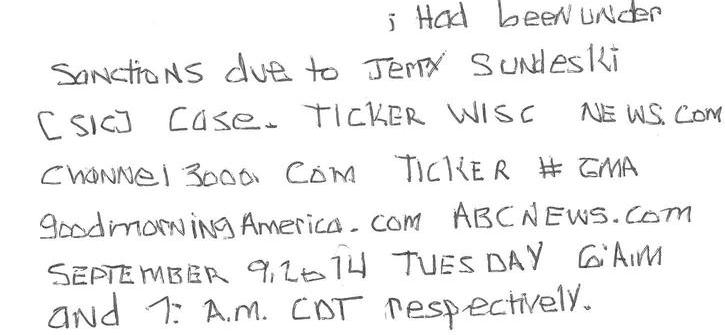 i Had been under
Sanctions due to Jerry Sundeski
[SIC] Case. TICKER WISC NEWS.COM
Channel 3000. COM TICKER # GMA
goodmorningAmerica.com ABCNEWS.com
SEPTEMBER 9, 2014 TUESDAY 6:A.M
and 7: A.M. CDT respectively.